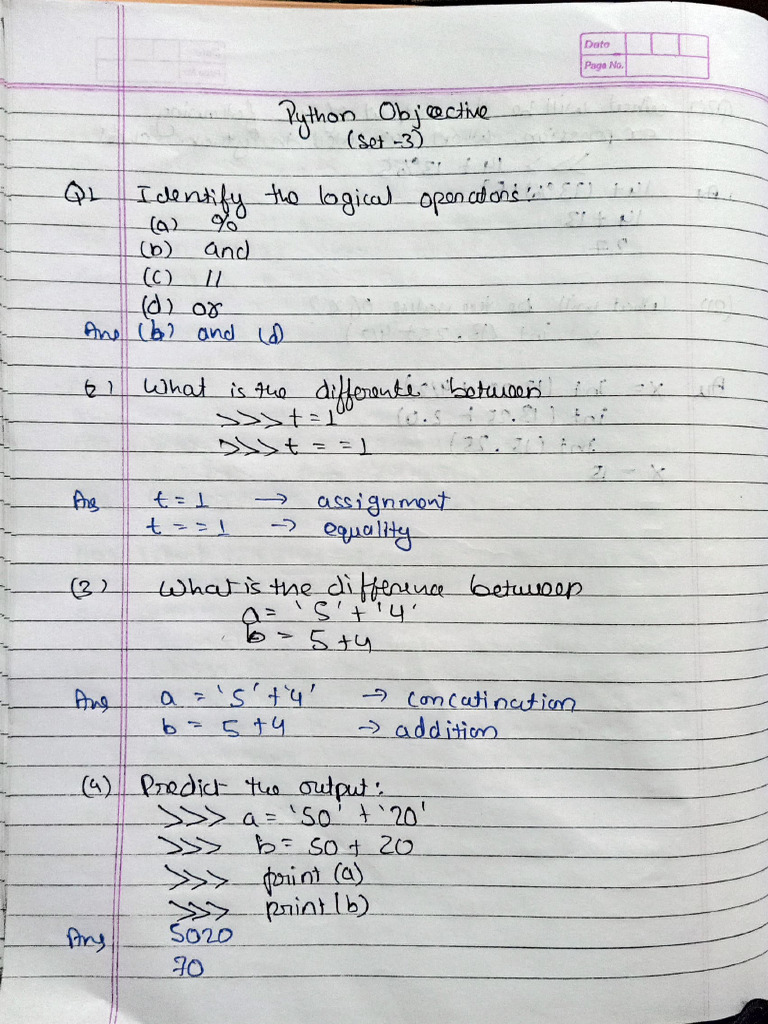 Date
Page No.
Python Objective
(Set-3)
Q1 Identify the logical operators:
(a) %
(b) and
(c) //
(d) or
Ans (b) and (d)
2) What is the difference between
>>> t = 1
>>> t = = 1
Ans t = 1 → assignment
t = = 1 → equality
(3) What is the difference between
a = '5' + '4'
b = 5 + 4
Ans a = '5' + '4' → concatination
b = 5 + 4 → addition
(4) Predict the output:
>>> a = '50' + '20'
>>> b = 50 + 20
>>> print (a)
>>> print (b)
Ans 5020
70